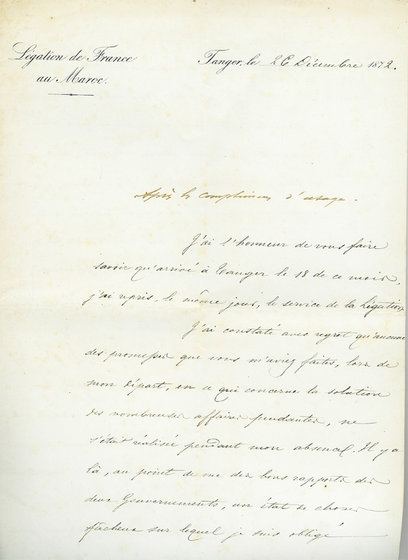 Légation de France
au Maroc.
Tanger, le 26 Décembre 1872.
Après les complimens d'usage.
J'ai l'honneur de vous faire
savoir qu'arrivé à Tanger le 18 de ce mois,
j'ai repris, le même jour, le service de la Légation.
J'ai constaté avec regret qu'aucune
des promesses que vous m'aviez faites, lors de
mon départ, en ce qui concerne la solution
des nombreuses affaires pendantes, ne
s'était réalisée pendant mon absence. Il y a
là, au point de vue des bons rapports des
deux Gouvernements, un état de choses
fâcheux sur lequel je suis obligé